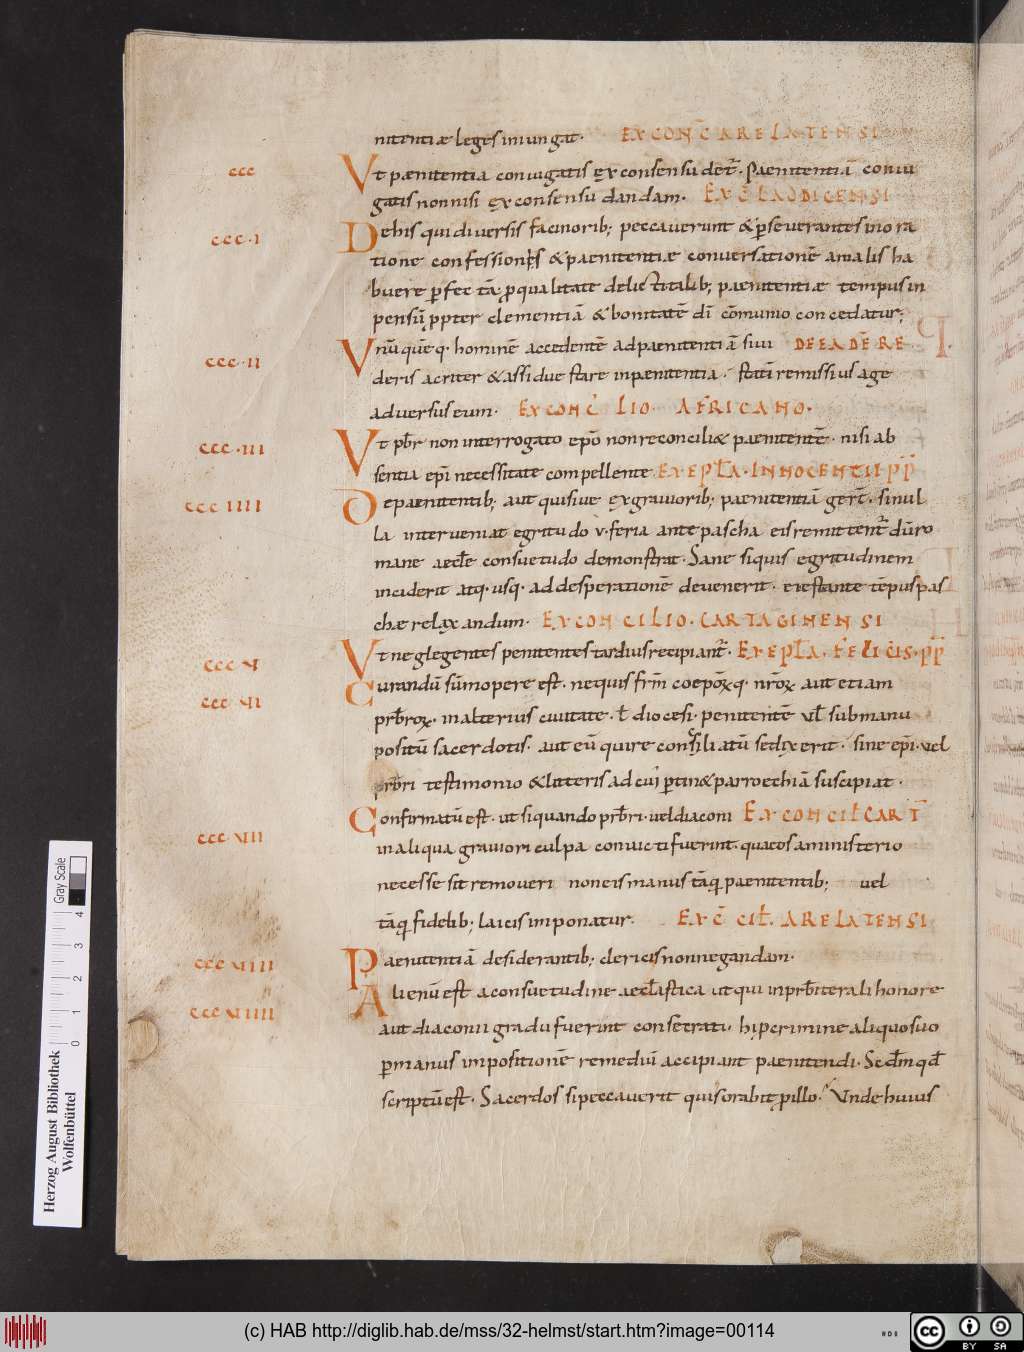 nitentiæ leges iniungat. EX CONC̄ ARELATENSI
ccc Vt pænitentia coniugatis ex consensu det̄. Paenitentiā coniu
gatis non nisi ex consensu dandam. EX C̄ LAODICENSI
ccc·I De his qui diuersis facinorib; peccauerunt & p̱seuerantes in ora
tione confessionis & paenitentiæ conuersationē a malis ha
buere p̱fectā ꝓ qualitate delictitalib; paenitentiæ tempus in
pensū ꝓpter clementiā & bonitatē dī cōmunio concedatur;
ccc·II Vnūquēq· hominē accedentē ad paenitentiā siui DEEADĒRE
deris acriter & assidue stare in pænitentia · statī remissius age
aduersus eum· EX CONCI LIO AFRICANO·
ccc·III Vt pb̄r non interrogato ep̄o non reconciliæ paenitentē· nisi ab
sentia ep̄i necessitate compellente EX EPLA· INNOCENTII P̄P̄
ccc IIII De paenitentib; aut qui siue ex grauiorib; paenitentiā ger̄t· si nul
la interueniat egritudo v· feria ante pascha eis remittent̄ dū ro
mane aecl̄e consuetudo demonstrat· Sane siquis egritudinem
inciderit atq· usq· ad desperationē deuenerit· ei estante tēpus pas
chæ relaxandum· EX CONCILIO· CARTAGINENSI
ccc VI Vt neglegentes penitentes tardius recipiant̄· EX EPLA· FELICIS· P̄P̄
ccc VII Curandū sūmopere est· nequis fr̄m coep̄oꝝq· nr̄oꝝ aut etiam
pr̄b̄roꝝ· in alterius ciuitate· ł diocesi· penitentē vl̄ sub manu
positū sacerdotis· aut eū qui re consiliatū se dixerit· sine ep̄i· vel
pr̄b̄ri testimonio & litteris ad cui p̱tin& parroechiā suscipiat·
Confirmatū est· ut si quando pr̄b̄ri· uel diaconi EX CONCIL̄ CART̄
ccc·VIII in aliqua grauiori culpa conuicti fuerint· qua eos a ministerio
necesse sit remoueri non eis manus tāq̄ paenitentib; uel
tāq̄ fidelib; laicis imponatur· EX C̄ CIL̄. ARELATENSI
ccc VIIII Paenitentiā desiderantib; clericis non negandam·
ccc VIIIII Alienū est a consuetudine aecl̄astica ut qui in pr̄b̄iterali honore
aut diaconii gradu fuerint consecrati· hi p̱ crimine aliquo suo
p̱ manus impositionē remediū accipiant paenitendi· Scd̄m qd̄
scriptū est· Sacerdos si peccauerit quis orabit p̱ illo· Vnde huius
Herzog August Bibliothek
Wolfenbüttel
Gray Scale
0 1 2 3 4
(c) HAB http://diglib.hab.de/mss/32-helmst/start.htm?image=00114
cc BY SA